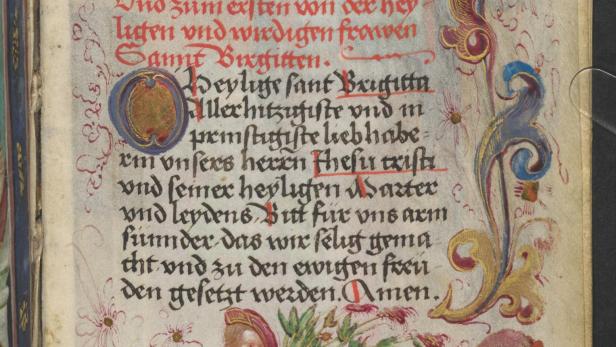 Und zum ersten von der hey-
ligen und wirdigen frawen
Sannt Birgitten.
O Heylige sant Brigitta
Allerhitzigiste vnd in
prinstigiste liebhabe-
rin vnsers herrn Jhesu cristi
vnd seiner heyligen Marter
vnd leydens Bitt für vns arm
sünnder das wir selig gema-
cht vnd zu den ewigen freü
den gesetzt werden. Amen.